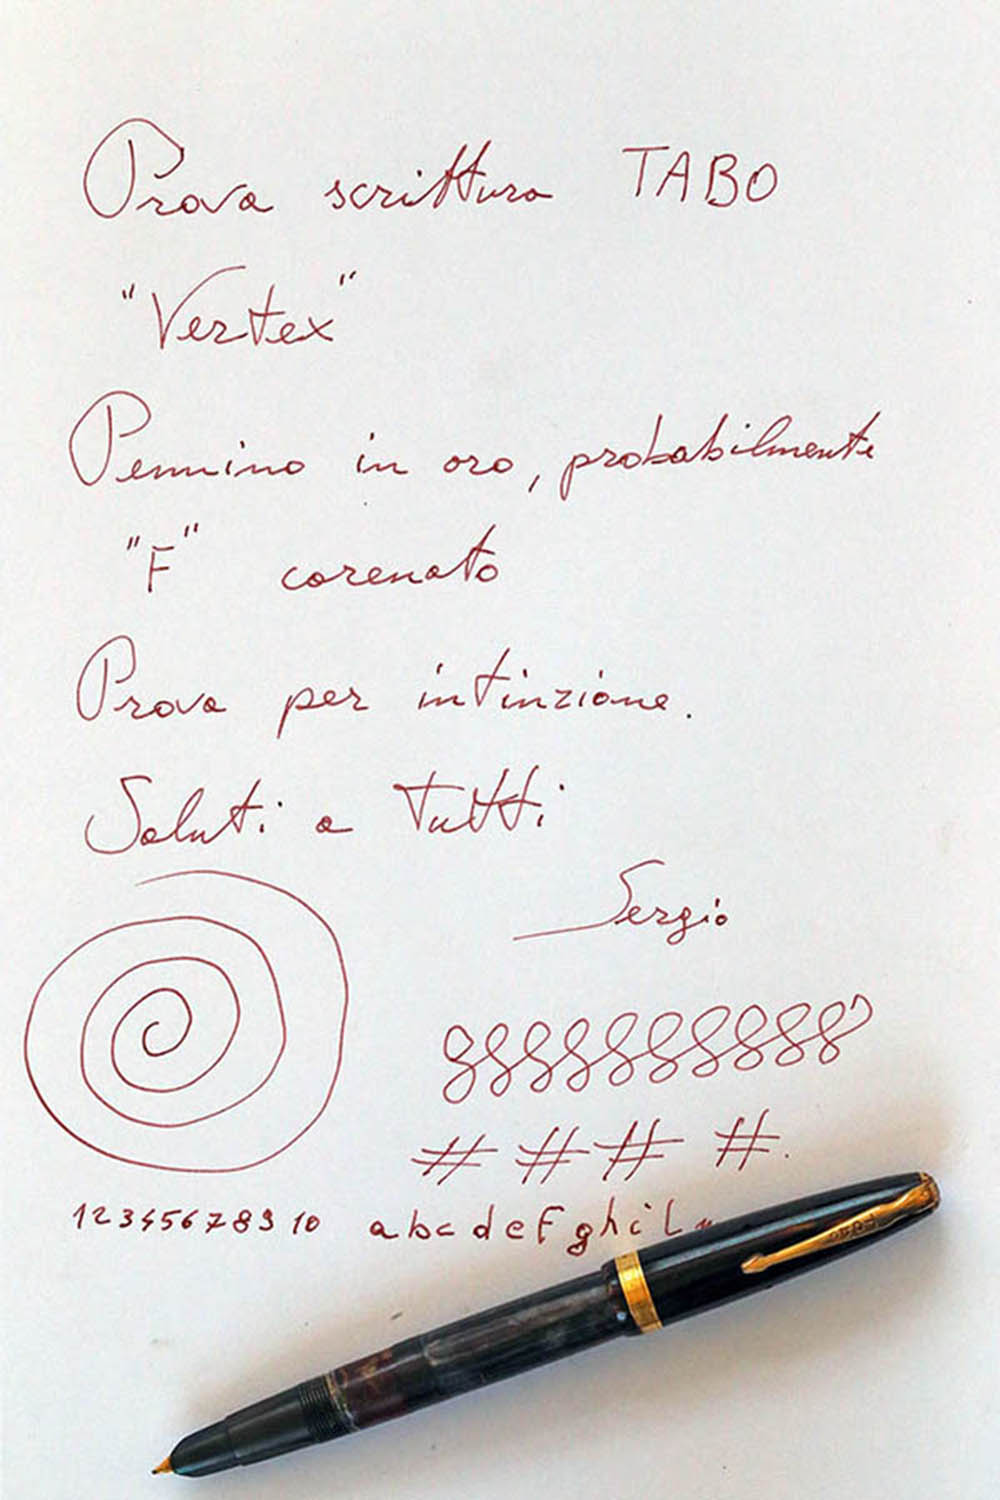 Prova scrittura TABO
"Vertex"
Pennino in oro, probabilmente
"F" carenato
Prova per intinzione.
Saluti a tutti
Sergio
# # # #.
1 2 3 4 5 6 7 8 9 10 a b c d e F g h i l m
TABO